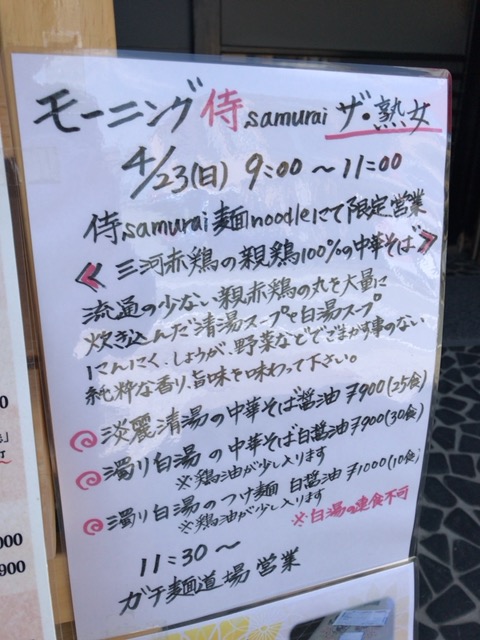 モーニング侍.samurai ザ・熟女
4/23(日) 9:00～11:00
侍.samurai麺noodleにて限定営業
三河赤鶏の親鶏100%の中華そば
流通の少ない親赤鶏の丸を大量に
炊き込んだ清湯スープと白湯スープ
にんにく、しょうが、野菜などでごまかす事のない
純粋な香り、旨味を味わって下さい。
淡麗清湯の中華そば醤油 ¥900(25食)
濁り白湯の中華そば白醤油 ¥900(30食)
※鶏油が少し入ります
濁り白湯のつけ麺 白醤油 ¥1000(10食)
※鶏油が少し入ります
※白湯の連食不可
11:30～
ガチ麺道場営業
000
900